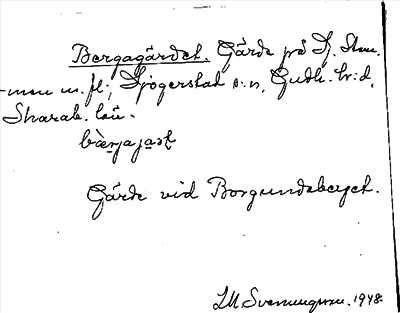 Bergagärdet. Gärde på
m. fl., Sjogerstad s:n, Gudh. hr:d,
Skarab. län.
bæ̀rjajaʂt
Gärde vid Borgundaberget.
Svenungsson. 1948.